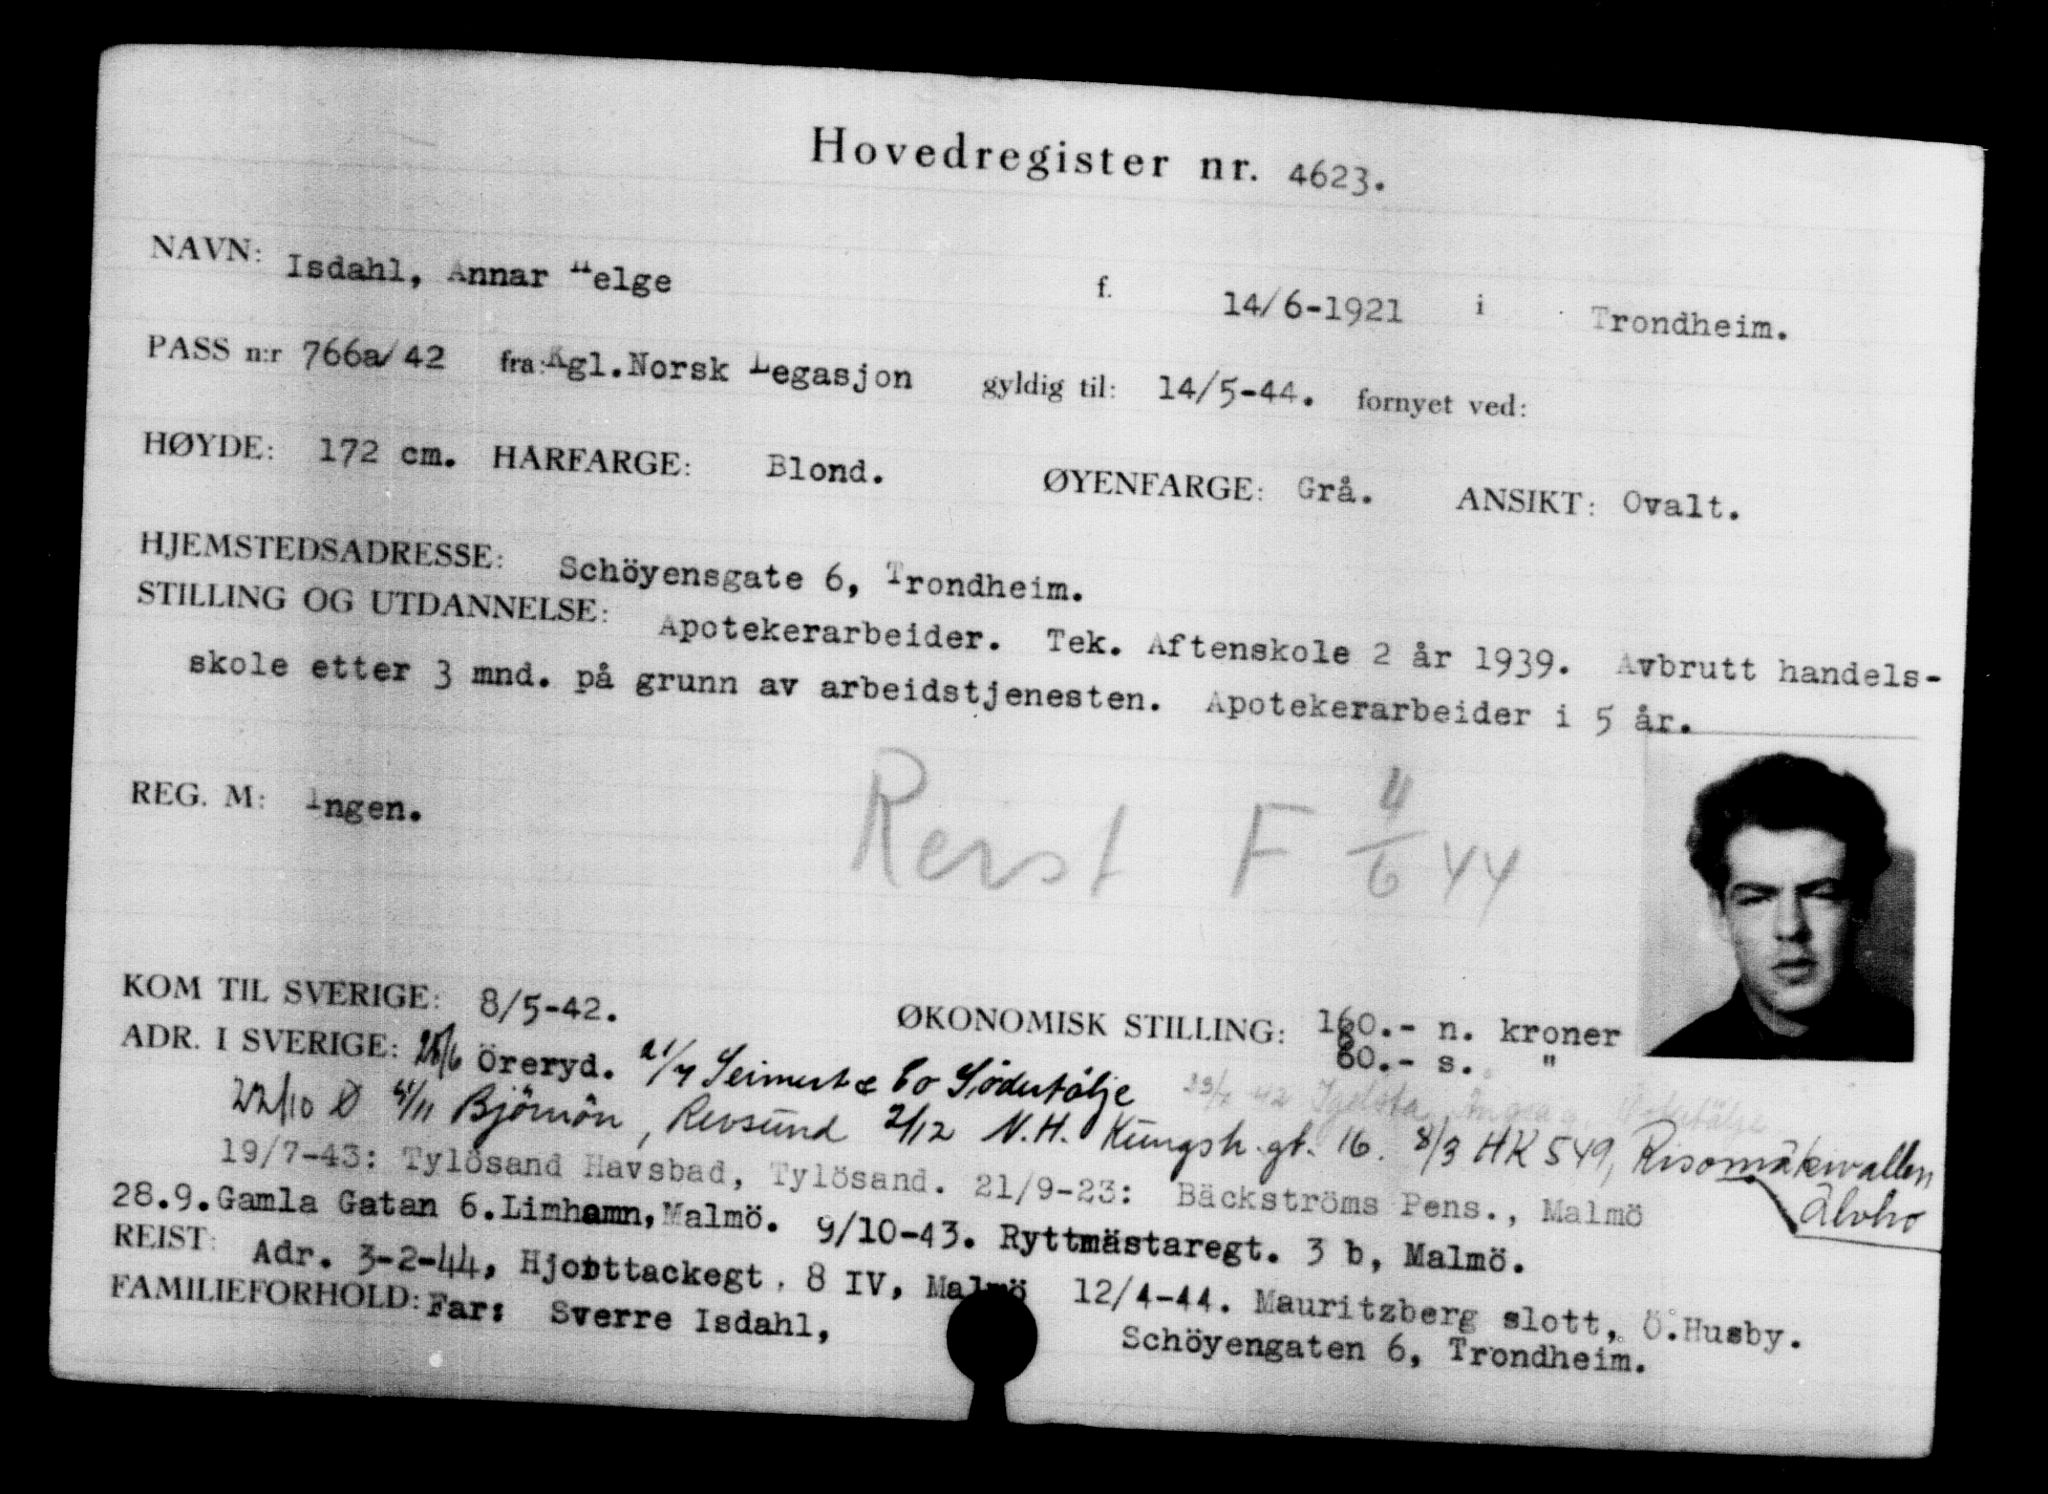 Hovedregister nr. 4623.
NAVN: Isdahl, Annar Helge f. 14/6-1921 i Trondheim.
PASS n:r 766a/42 fra: Kgl.Norsk Legasjon gyldig til: 14/5-44. fornyet ved:
HØYDE: 172 cm. HÅRFARGE: Blond. ØYENFARGE: Grå. ANSIKT: Ovalt.
HJEMSTEDSADRESSE: Schöyensgate 6, Trondheim.
STILLING OG UTDANNELSE: Apotekerarbeider. Tek. Aftenskole 2 år 1939. Avbrutt handels-
skole etter 3 mnd. på grunn av arbeidstjenesten. Apotekerarbeider i 5 år.
REG. M: Ingen.
Reist F 4/6 44
KOM TIL SVERIGE: 8/5-42. ØKONOMISK STILLING: 160.- n. kroner
60.- s. "
ADR. I SVERIGE: Öreryd. 21/7 & Co Södertälje
22/10 Björnön, Revsund 2/12 N.H. Kungsh.gt. 16. 8/3 HK 549,
Älvho
19/7-43: Tylösand Havsbad, Tylösand. 21/9-23: Bäckströms Pens., Malmö
28.9. Gamla Gatan 6. Limhamn, Malmö. 9/10-43. Ryttmästaregt. 3 b, Malmö.
REIST: Adr. 3-2-44, Hjorttackegt. 8 IV, Malmö 12/4-44. Mauritzberg slott, Ö.Husby.
FAMILIEFORHOLD: Far: Sverre Isdahl, Schöyengaten 6, Trondheim.